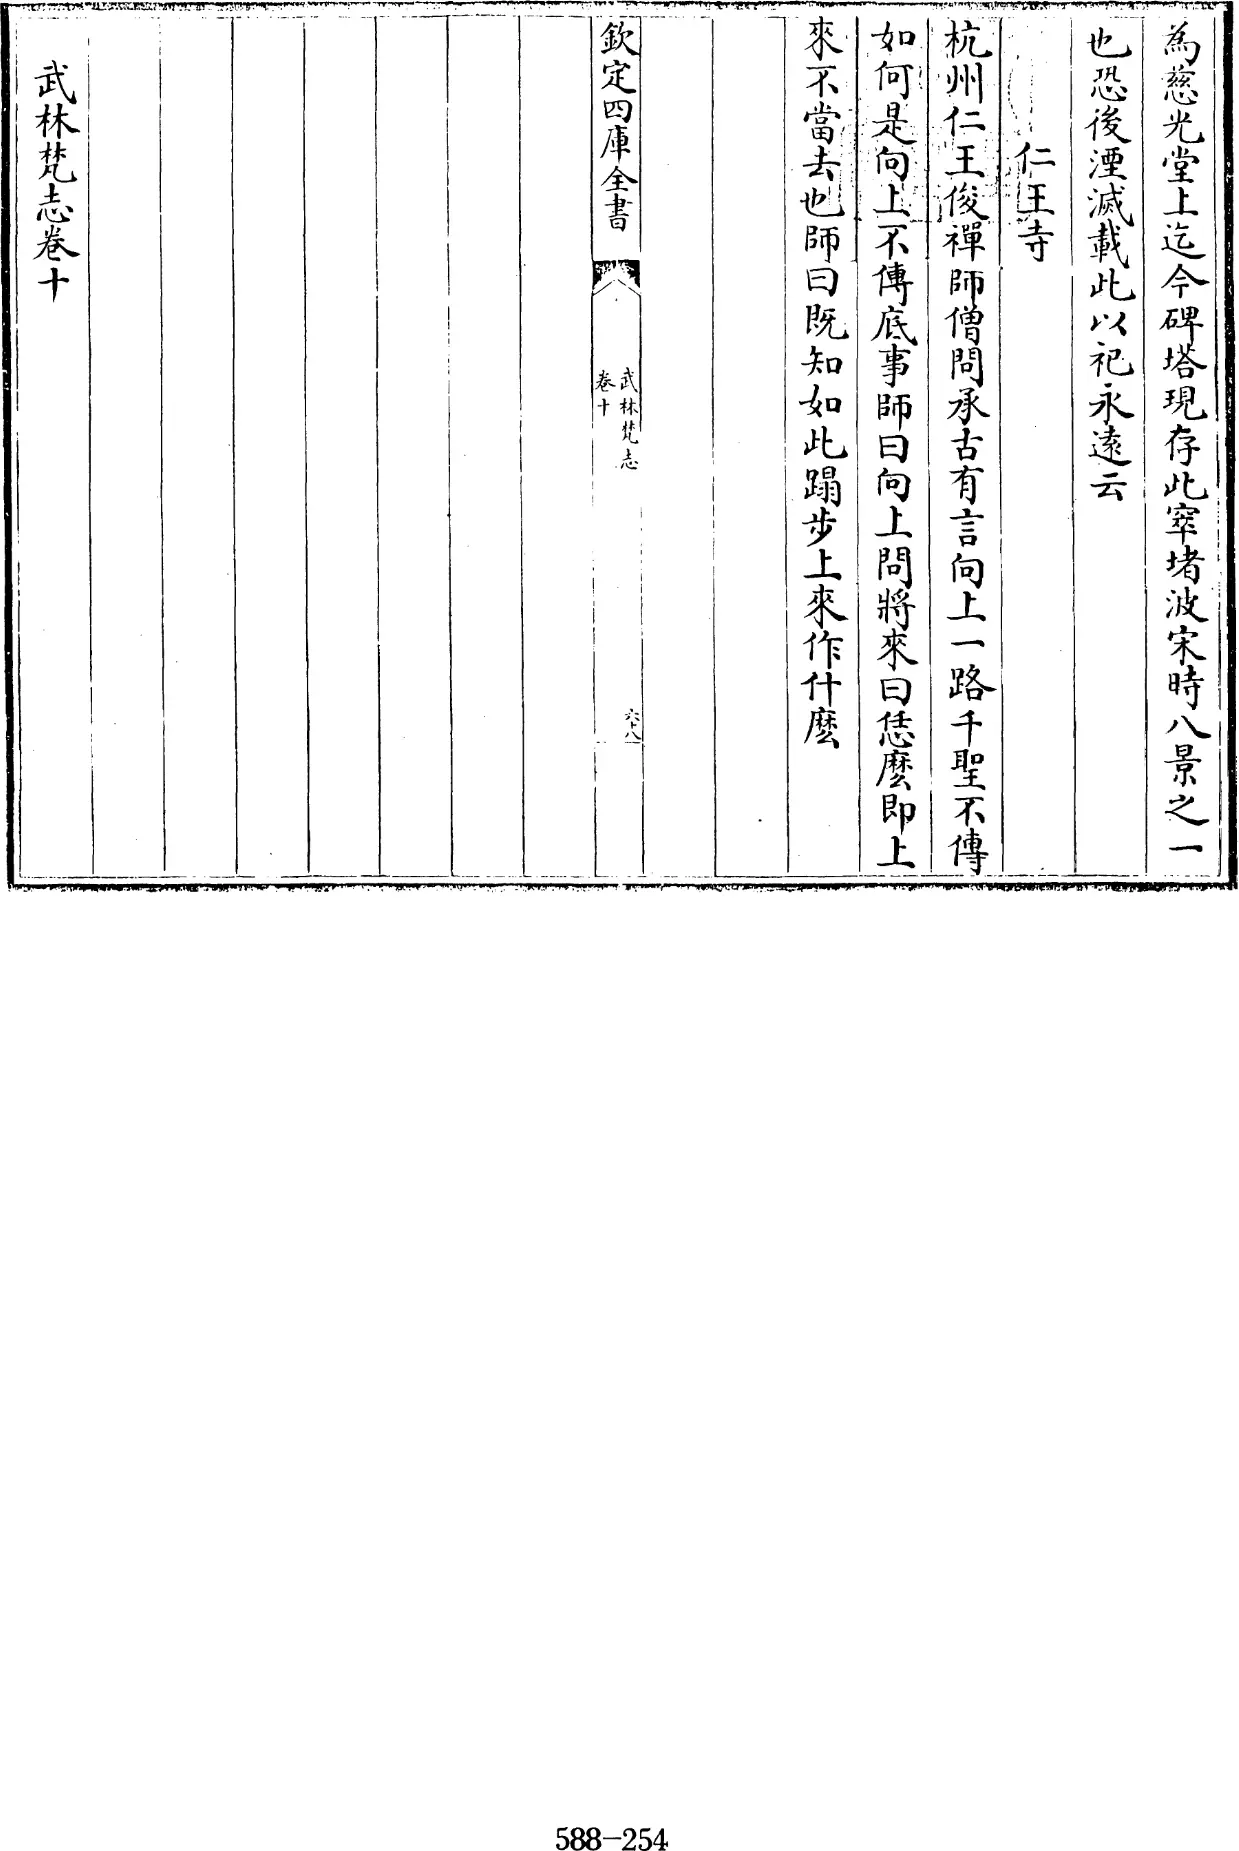 為慈光堂上迄今碑塔現存此窣堵波宋時八景之一
也恐後湮滅載此以祀永遠云
仁王寺
杭州仁王俊禪師僧問承古有言向上一路千聖不傳
如何是向上不傳底事師曰向上問將來曰恁麽即上
來不當去也師曰既知如此蹋步上來作什麽
欽定四庫全書
武林梵志
卷十
六十八
武林梵志卷十
588-254